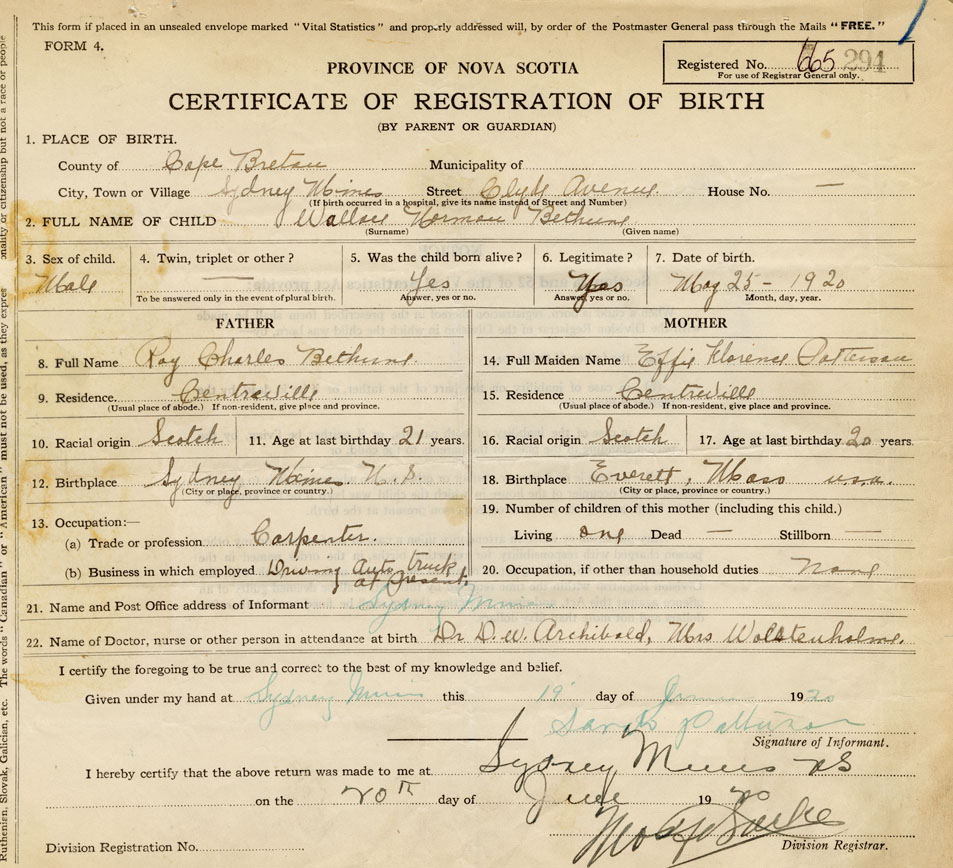 This form if placed in an unsealed envelope marked "Vital Statistics" and properly addressed will, by order of the Postmaster General pass through the Mails "FREE."
FORM 4.
Registered No. 665 294
For use of Registrar General only.
PROVINCE OF NOVA SCOTIA
CERTIFICATE OF REGISTRATION OF BIRTH
(BY PARENT OR GUARDIAN)
1. PLACE OF BIRTH.
County of Cape Breton Municipality of
City, Town or Village Sydney Mines Street Clyde Avenue House No. —
(If birth occurred in a hospital, give its name instead of Street and Number)
2. FULL NAME OF CHILD Wallace Norman Bethune
(Surname) (Given name)
3. Sex of child. 4. Twin, triplet or other ? 5. Was the child born alive? 6. Legitimate ? 7. Date of birth.
Male — Yes Yes May 25 - 1920
To be answered only in the event of plural birth. Answer, yes or no. Answer, yes or no. Month, day, year.
FATHER MOTHER
8. Full Name Roy Charles Bethune. 14. Full Maiden Name Effie Florence Patterson
9. Residence. Centreville 15. Residence Centreville
(Usual place of abode.) If non-resident, give place and province. (Usual place of abode.) If non-resident, give place and province.
10. Racial origin Scotch 11. Age at last birthday 21 years. 16. Racial origin Scotch 17. Age at last birthday 20 years.
12. Birthplace Sydney Mines N.S. 18. Birthplace Everett, Mass U.S.A.
(City or place, province or country.) (City or place, province or country.)
13. Occupation:— 19. Number of children of this mother (including this child.)
(a) Trade or profession Carpenter. Living one Dead — Stillborn —
(b) Business in which employed Driving Auto truck at present. 20. Occupation, if other than household duties None
21. Name and Post Office address of Informant Sydney Mines
22. Name of Doctor, nurse or other person in attendance at birth Dr D. W. Archibald, Mrs Wolstenholme.
I certify the foregoing to be true and correct to the best of my knowledge and belief.
Given under my hand at Sydney Mines this 19 day of June 1920
Sarah Patterson
Signature of Informant.
I hereby certify that the above return was made to me at Sydney Mines NS
on the 20th day of June 1920
Division Registration No.
Division Registrar.
The words "Canadian" or "American" must not be used, as they expres
onality or citizenship but not a race or people
Ruthenien, Slovak, Galician, etc.